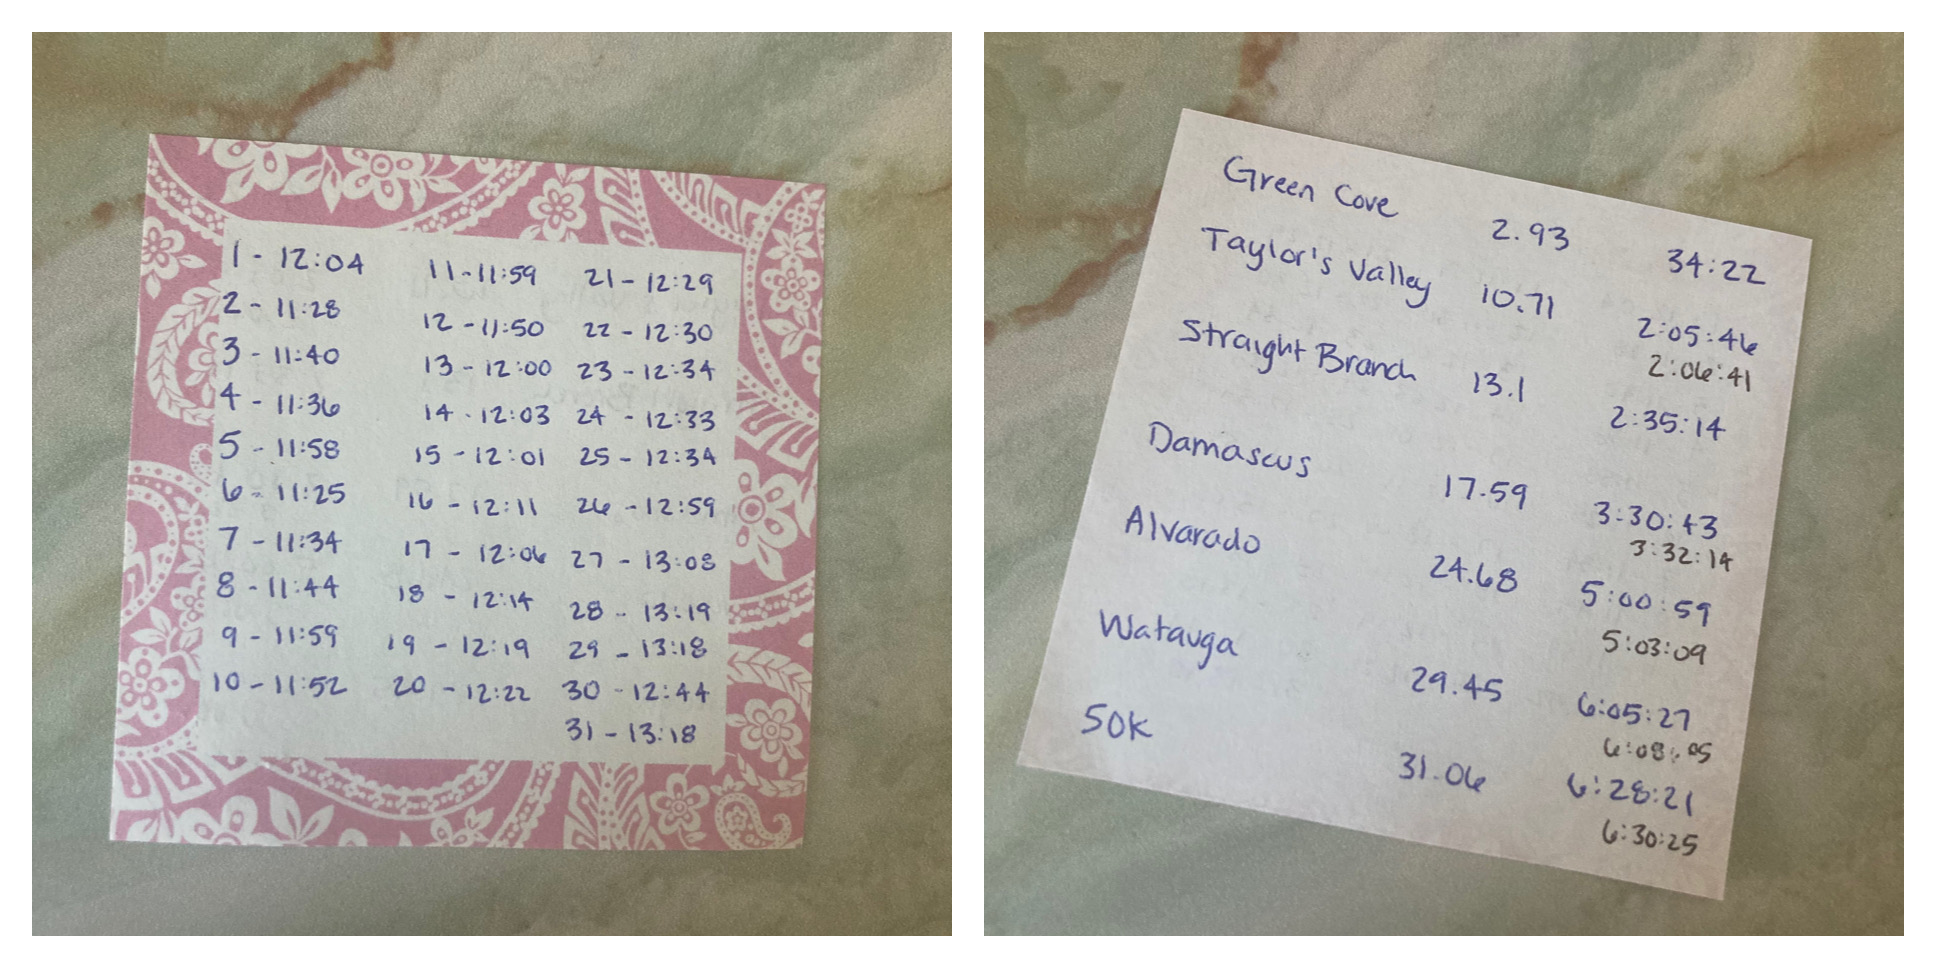 1 - 12:04
2 - 11:28
3 - 11:40
4 - 11:36
5 - 11:58
6 - 11:25
7 - 11:34
8 - 11:44
9 - 11:59
10 - 11:52
11 - 11:59
12 - 11:50
13 - 12:00
14 - 12:03
15 - 12:01
16 - 12:11
17 - 12:06
18 - 12:14
19 - 12:19
20 - 12:22
21 - 12:29
22 - 12:30
23 - 12:34
24 - 12:33
25 - 12:34
26 - 12:59
27 - 13:08
28 - 13:19
29 - 13:18
30 - 12:44
31 - 13:18
Green Cove 2.93 34:22
Taylor's Valley 10.71 2:05:46
2:06:41
Straight Branch 13.1 2:35:14
Damascus 17.59 3:30:43
3:32:14
Alvarado 24.68 5:00:59
5:03:09
Watauga 29.45 6:05:27
6:08:05
50K 31.06 6:28:21
6:30:25